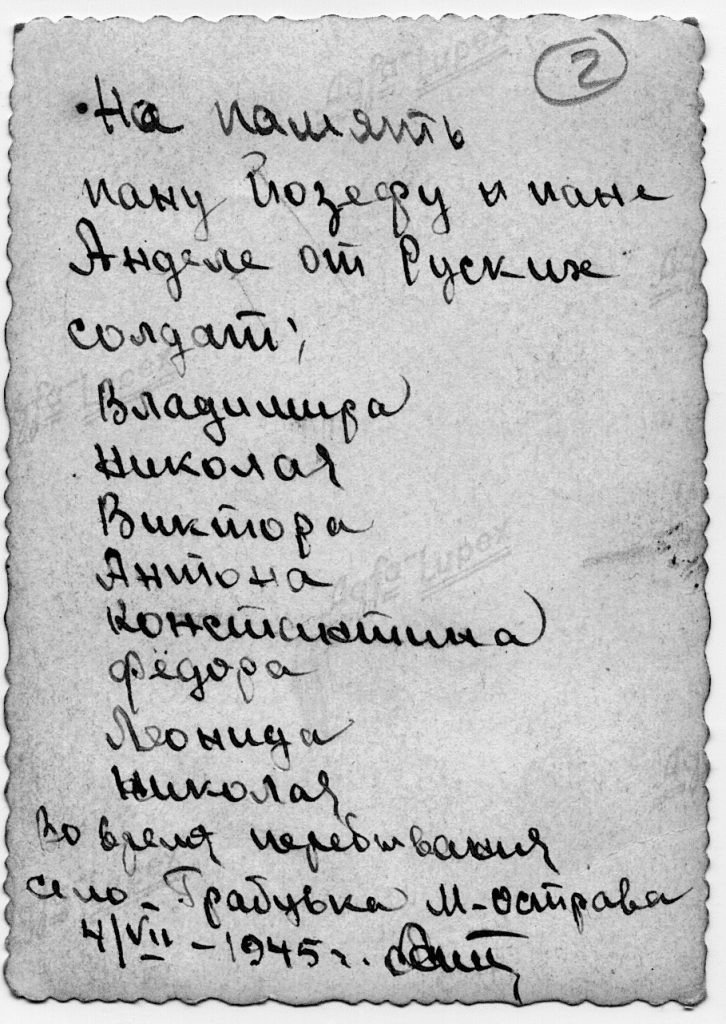 2
На память
пану Йозефу и пане
Анделе от Руских
солдат;
Владимира
Николая
Виктора
Антона
Константина
Фёдора
Леонида
Николая
Во время перебывания
село - Грабувка М-Острава
4/VII - 1945 г.
Agfa-Lupex
Agfa-Lupex